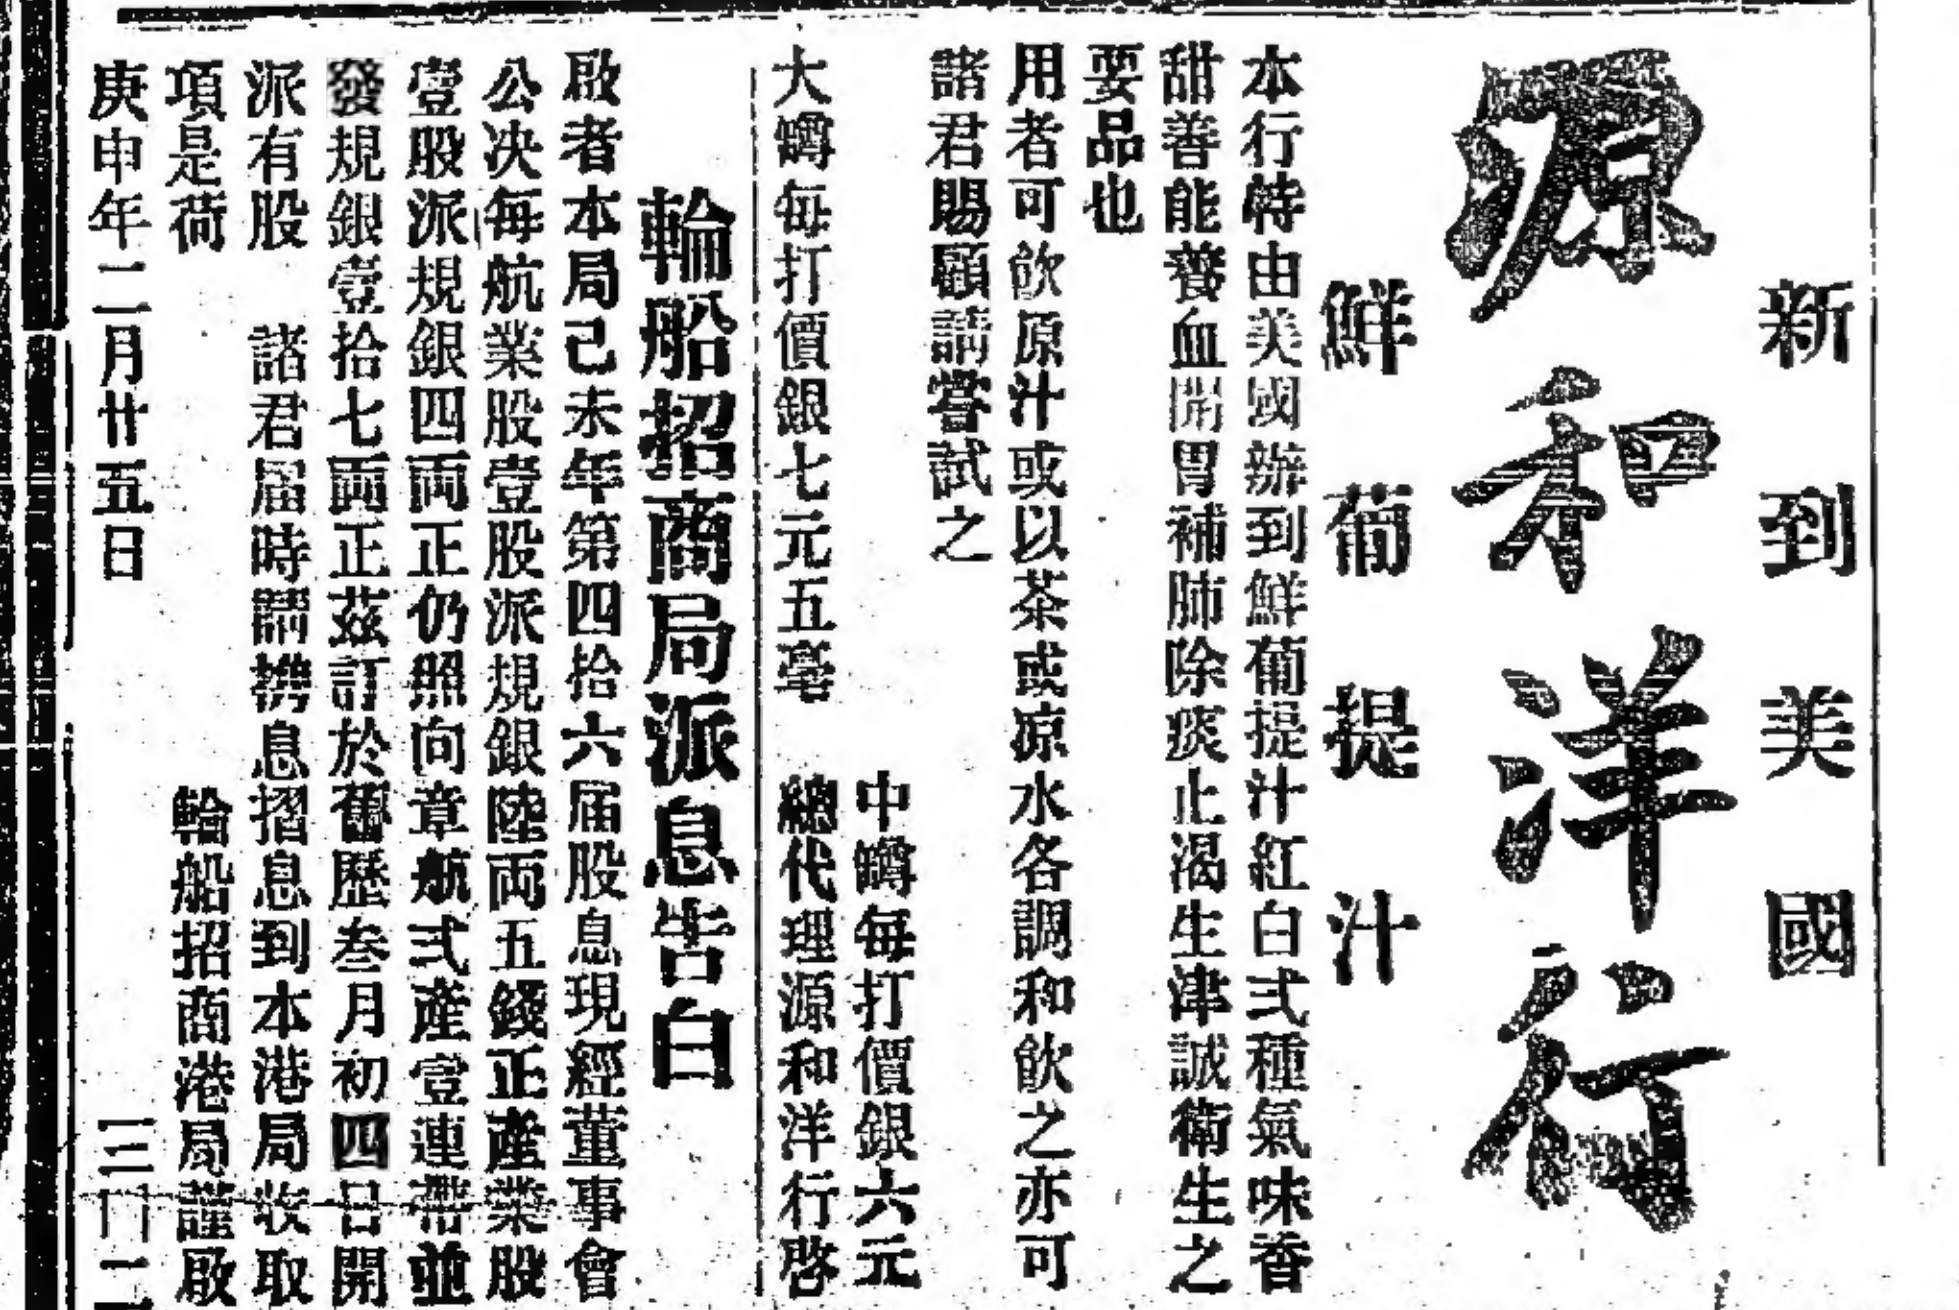 新到美國
源和洋行
鮮葡提汁
本行特由美國辦到鮮葡提汁紅白弍種氣味香
甜善能養血開胃補肺除痰止渴生津誠衛生之
要品也
用者可飲原汁或以茶或凉水各調和飲之亦可
諸君賜顧請嘗試之
中罇每打價銀六元
大罇每打價銀七元五毫　總代理源和洋行啓
輪船招商局派息告白
啟者本局己未年第四拾六届股息現經董事會
公决每航業股壹股派規銀陸両五錢正產業股
壹股派規銀四両正仍照向章航弍產壹連帶並
發規銀壹拾七両正茲訂於舊歷叁月初四日開
派有股　諸君届時請携息摺息到本港局收取
項是荷
輪船招商港局謹啟
庚申年二月廿五日